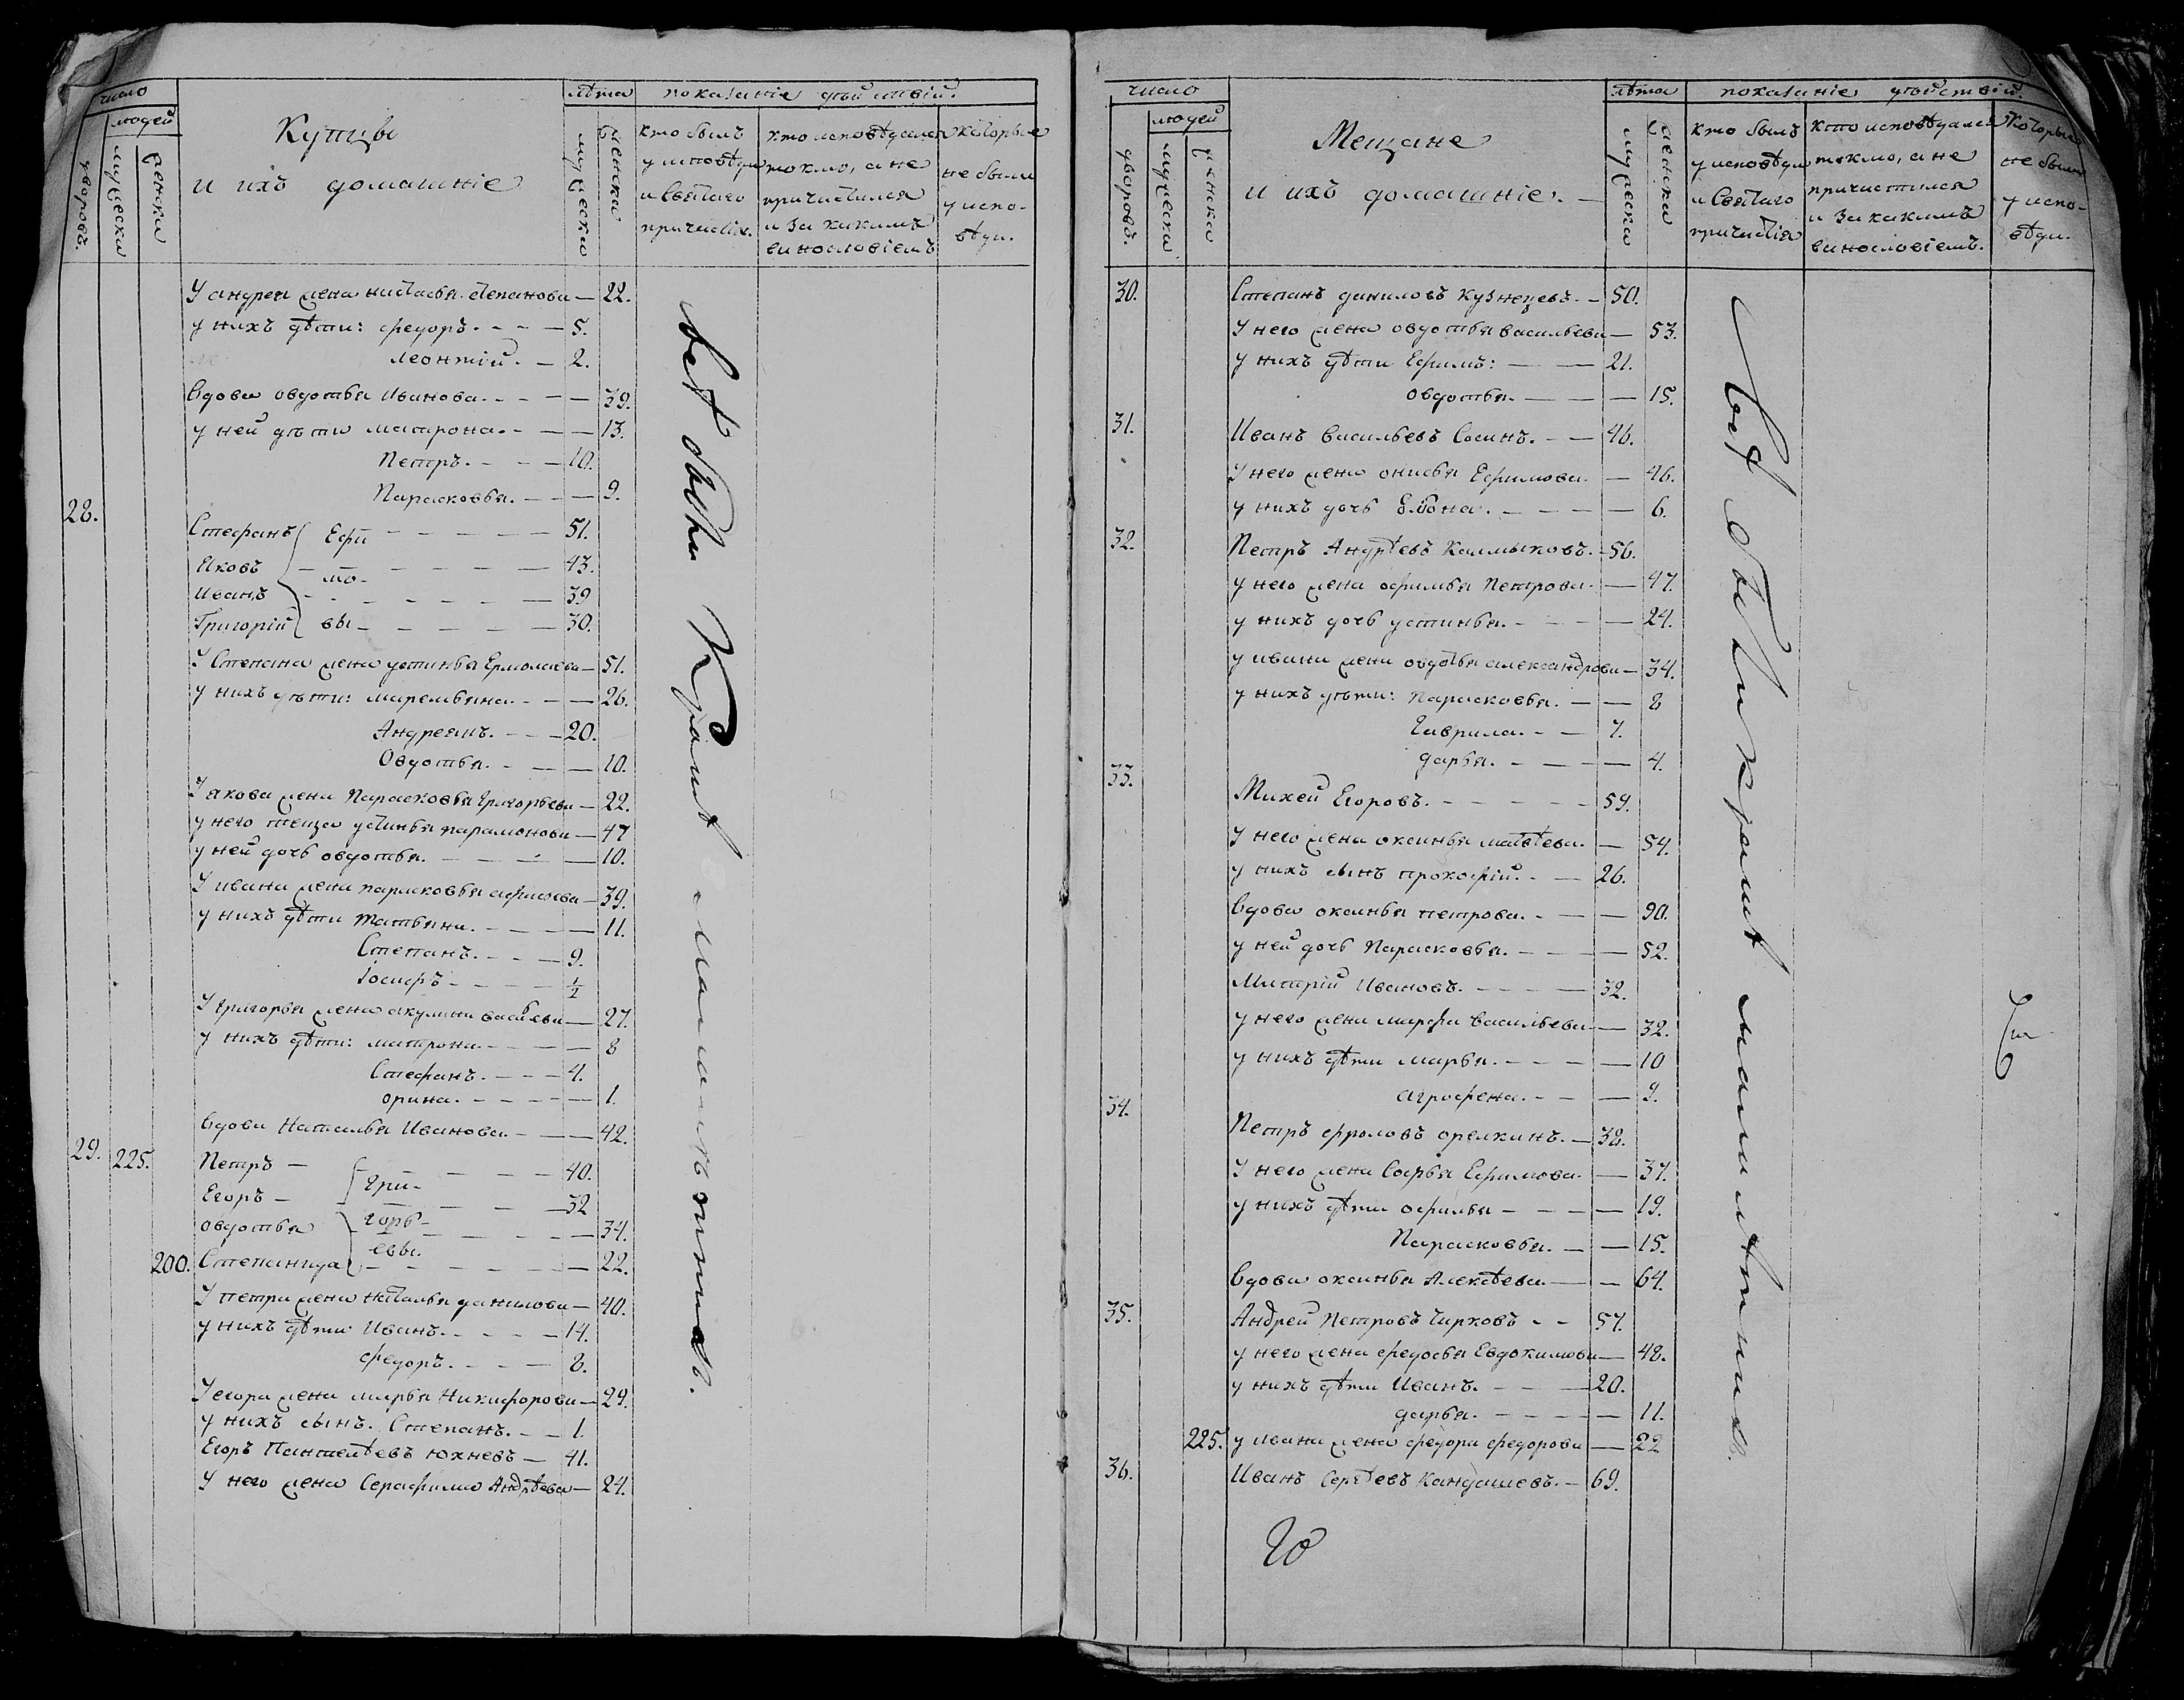 число
людей
дворовъ.
мужеска
женска
Купцы
и ихъ домашніе
лѣта
мужеска
женска
показаніе дѣйствій.
кто былъ
у исповѣди
и Святаго
причастія.
кто исповѣдался
токмо, а не
причастился
и за какимъ
винословіемъ
Которые
не были
у испо-
вѣди.
У андрея жена настасья степанова — 22.
у нихъ дѣти: федоръ. — 5.
леонтій. — 2.
вдова овдотья Иванова. — 39.
у ней дѣти матрона. — 13.
Петръ. — 10.
Парасковья. — 9.
28.
Стефанъ Ефи — 51.
Яковъ мо- — 43.
Иванъ — 39
Григорій вы — 30.
У Степана жена устинья Ермолаева — 51.
у нихъ дѣти: маремьяна. — 26.
Андреянъ. — 20.
Овдотья. — 10.
У якова жена Парасковья Григорьева — 22.
у него теща устинья парамонова — 47
у ней дочь овдотья. — 10.
У ивана жена парасковья — 39.
у нихъ дѣти татьяна. — 11.
Степанъ. — 9.
Іосифъ — 1/2
У Григорья жена акулина васильева — 27.
у нихъ дѣти: матрона. — 8
Стефанъ. — 4.
орина. — 1.
вдова Наталья Иванова. — 42.
29. 225. Петръ — Гри- — 40.
Егоръ — — 32
овдотья горь- — 34.
200. Степанида евы. — 22.
У петра жена наталья данилова — 40.
у нихъ дѣти Иванъ. — 14.
федоръ. — 8.
У егора жена марья Никифорова — 29.
у нихъ сынъ. Степанъ. — 1.
Егоръ Пантелѣевъ Юхневъ — 41.
У него жена Серафима Андрѣева — 24.
всѣ были Кромѣ малолѣтныхъ.
число
людей
дворовъ.
мужеска
женска
Мещане
и ихъ домашніе. —
лѣта
мужеска
женска
показаніе дѣйствій.
кто былъ
у исповѣди
и Святаго
причастія
кто исповѣдался
токмо, а не
причастился
и за какимъ
винословіемъ.
Которые
не были
у испо-
вѣди.
30. Степанъ даниловъ Кузнецовъ. — 50.
У него жена овдотья васильева — 53.
у нихъ дѣти Ефимъ: — 21.
Овдотья. — 15.
31. Иванъ васильевъ Сосинъ. — 46.
У него жена онисья Ефимова. — 46.
у нихъ дочь — 6.
32. Петръ Андрѣевъ Калмыковъ. — 56.
у него жена офимья Петрова. — 47.
у нихъ дочь устинья. — 24.
у ивана жена овдотья александрова — 34.
у нихъ дѣти: парасковья. — 8
Гаврила. — 7.
дарья. — 4.
33. Михей Егоровъ. — 59.
У него жена оксинья матвѣева. — 54.
у нихъ сынъ прокофій. — 26.
вдова оксинья петрова. — 90.
у ней дочь Парасковья. — 52.
Митрій Ивановъ. — 32.
у него жена марфа васильева — 32.
у нихъ дѣти марья. — 10
агрофена. — 9.
34. Петръ фроловъ орелкинъ. — 38.
У него жена Софья Ефимова. — 37.
у нихъ дѣти офимья — 19.
Парасковья. — 15.
вдова оксинья Алексѣева. — 64.
35. Андрей Петровъ Чирковъ — 57.
у него жена федосья Евдокимова — 48.
у нихъ дѣти Иванъ. — 20.
дарья. — 11.
225. у ивана жена федора федорова — 22
36. Иванъ Сергѣевъ Кандашевъ. — 69.
всѣ были кромѣ малолѣтныхъ.